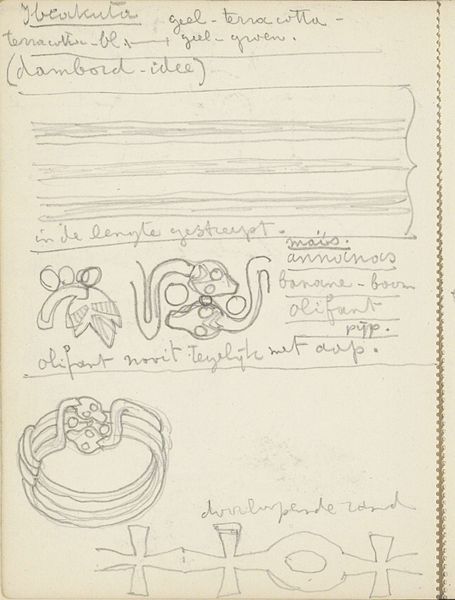 geel - terracotta -
terracotta - bl. geel - groen.
(dambord - idee)
in de lengte gestreept.
maïs.
annanas
banane - boom
olifant
pijp.
olifant nooit tegelijk met aap.
doorlopende rand